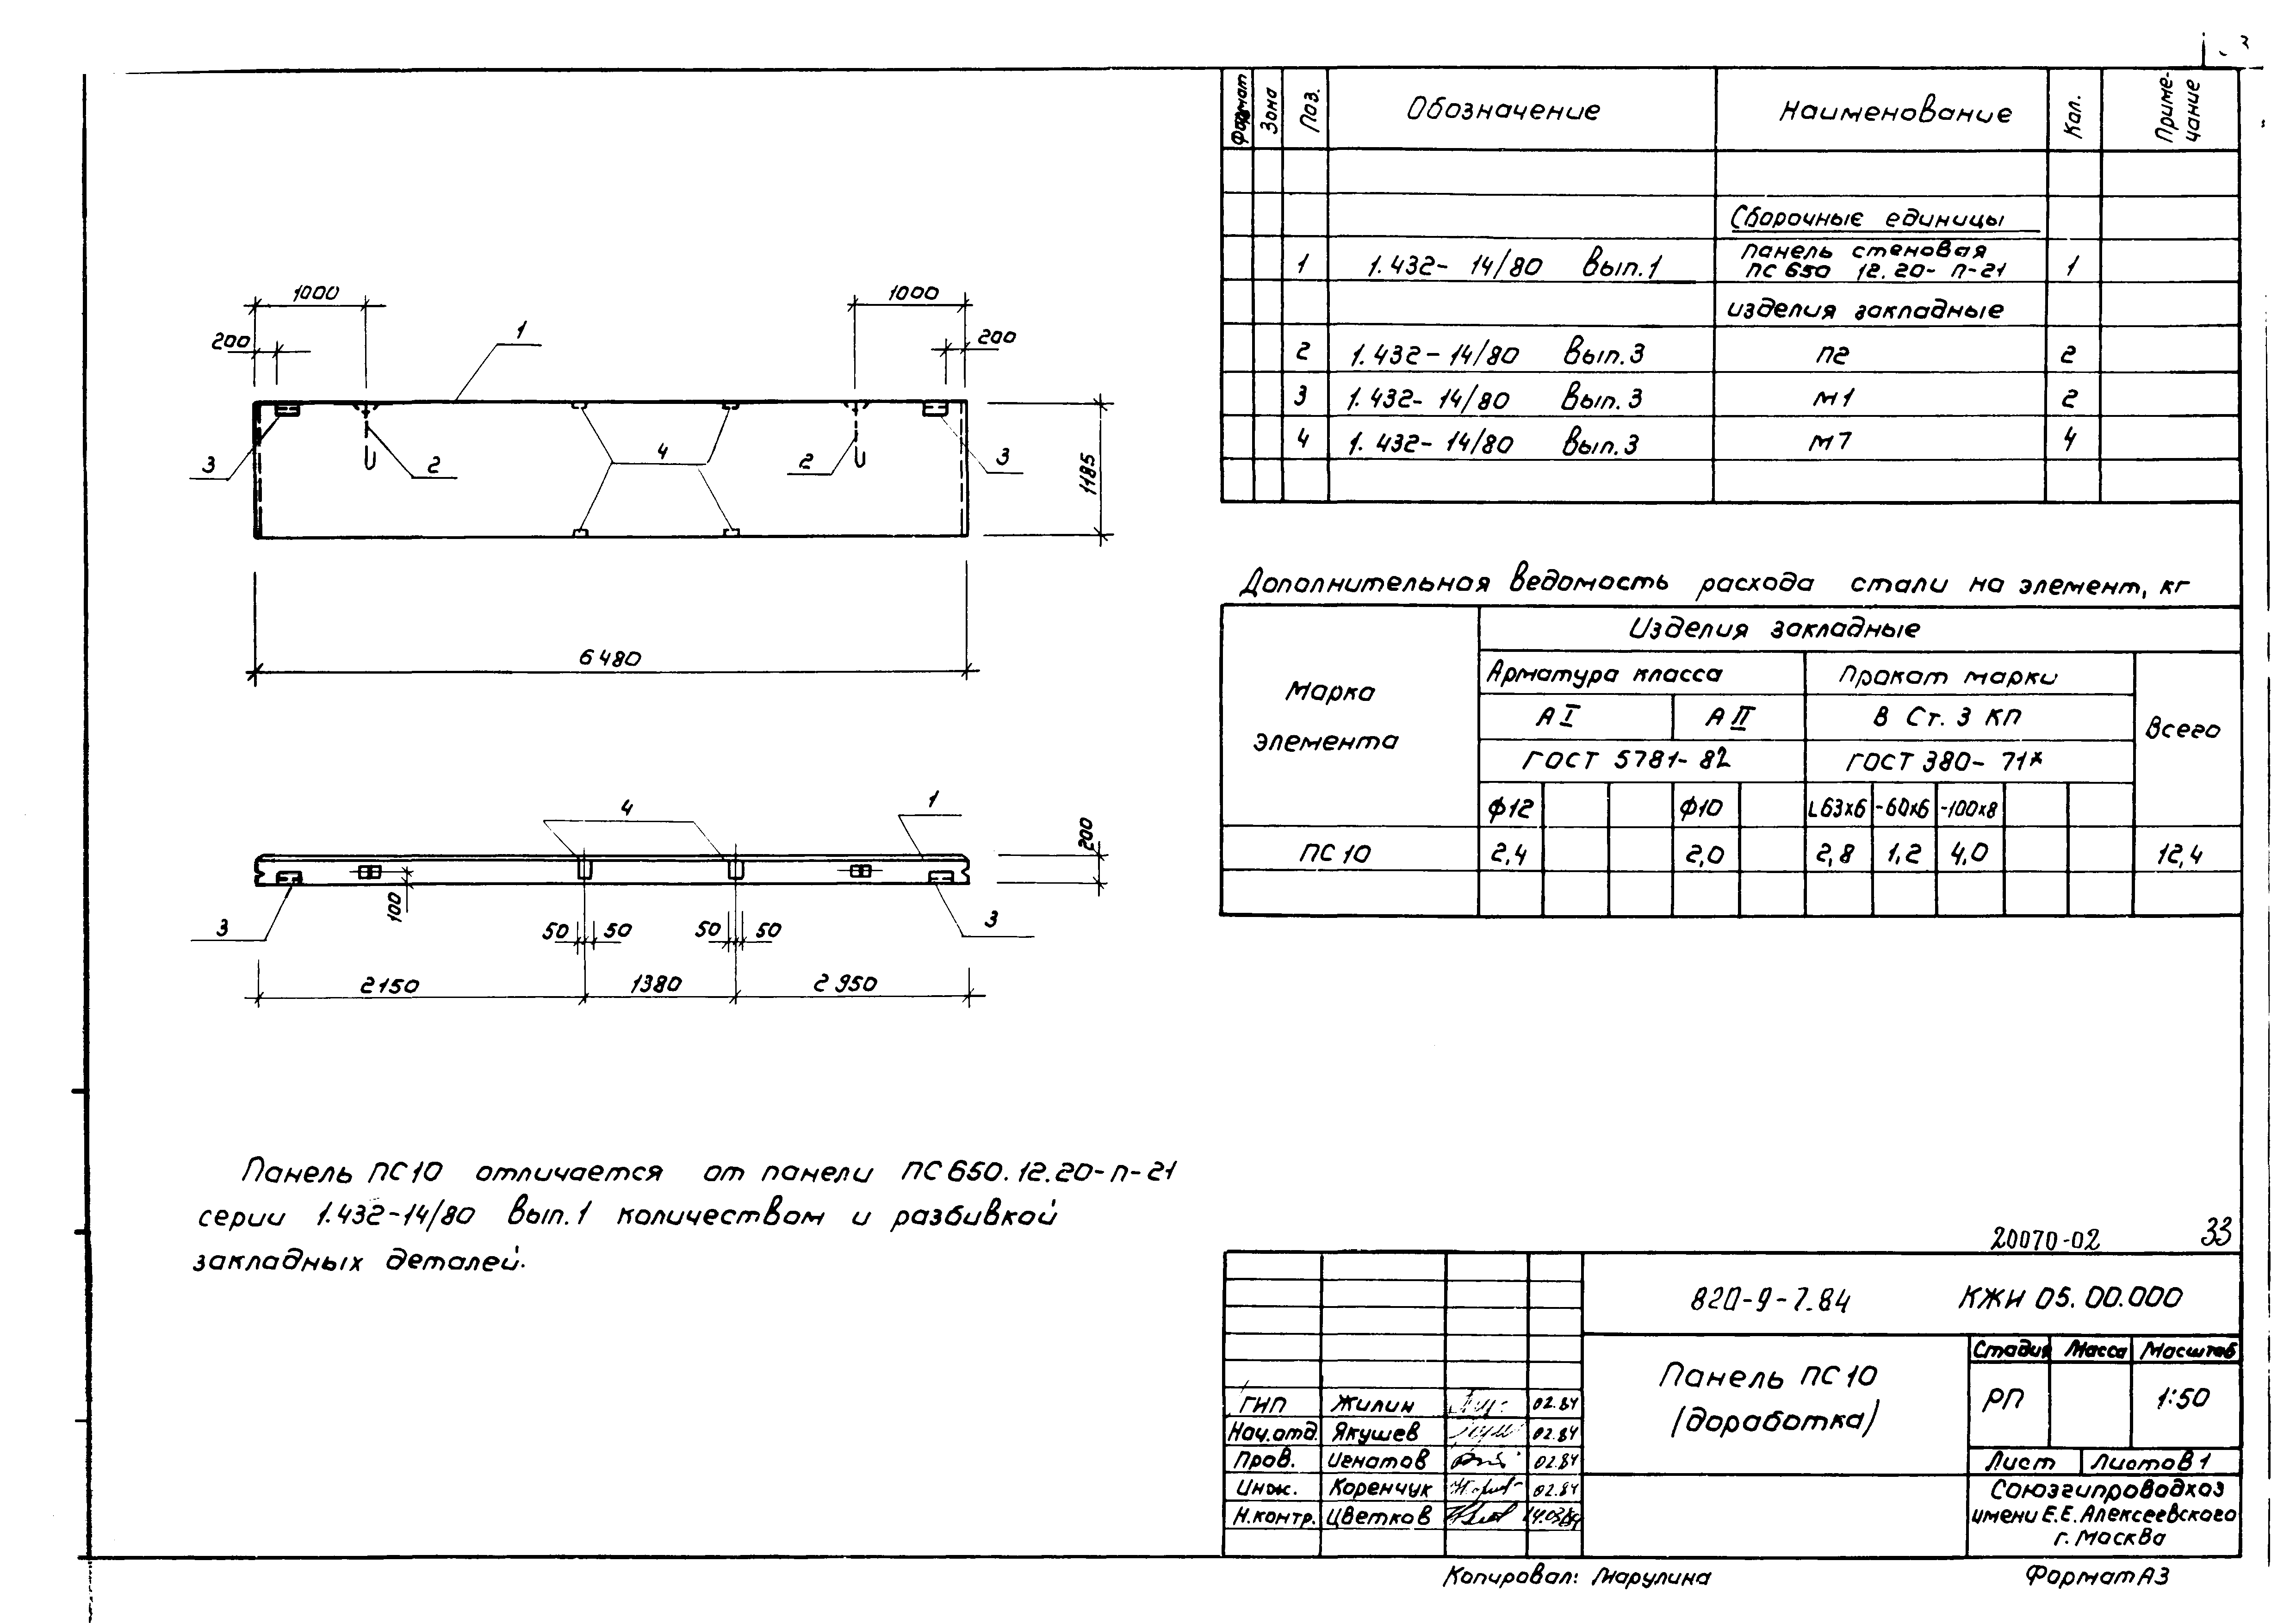 3
Формат Зона Поз. Обозначение Наименование Кол. Приме-
чание
Сборочные единицы
1 1.432-14/80 Вып.1 Панель стеновая
ПС 650 12.20-П-21 1
изделия закладные
2 1.432-14/80 Вып.3 П2 2
3 1.432-14/80 Вып.3 М1 2
4 1.432-14/80 Вып.3 М7 4
1000 1000
200 1 200
3 2 4 2 3
1185
6480
4 1
200
100
3 50 50 50 50 3
2150 1380 2950
Дополнительная ведомость расхода стали на элемент, кг
Марка
элемента
Изделия закладные
Арматура класса Прокат марки
Всего
АI АII В Ст. 3 КП
ГОСТ 5781-82 ГОСТ 380-71*
ф12 ф10 L63х6 -60х6 -100х8
ПС10 2,4 2,0 2,8 1,2 4,0 12,4
Панель ПС10 отличается от панели ПС650.12.20-П-21
серии 1.432-14/80 Вып.1 количеством и разбивкой
закладных деталей.
20070-02 33
820-9-7.84 КЖИ 05.00.000
Панель ПС10
(доработка)
Стадия Масса Масштаб
РП 1:50
Лист Листов 1
ГИП Жилин 02.84
Нач.отд. Якушев 02.84
Пров. Игнатов 02.84
Инж. Коренчук 02.84
Н.контр. Цветков
Союзгипроводхоз
имени Е.Е.Алексеевского
г. Москва
Копировал: Марулина Формат А3